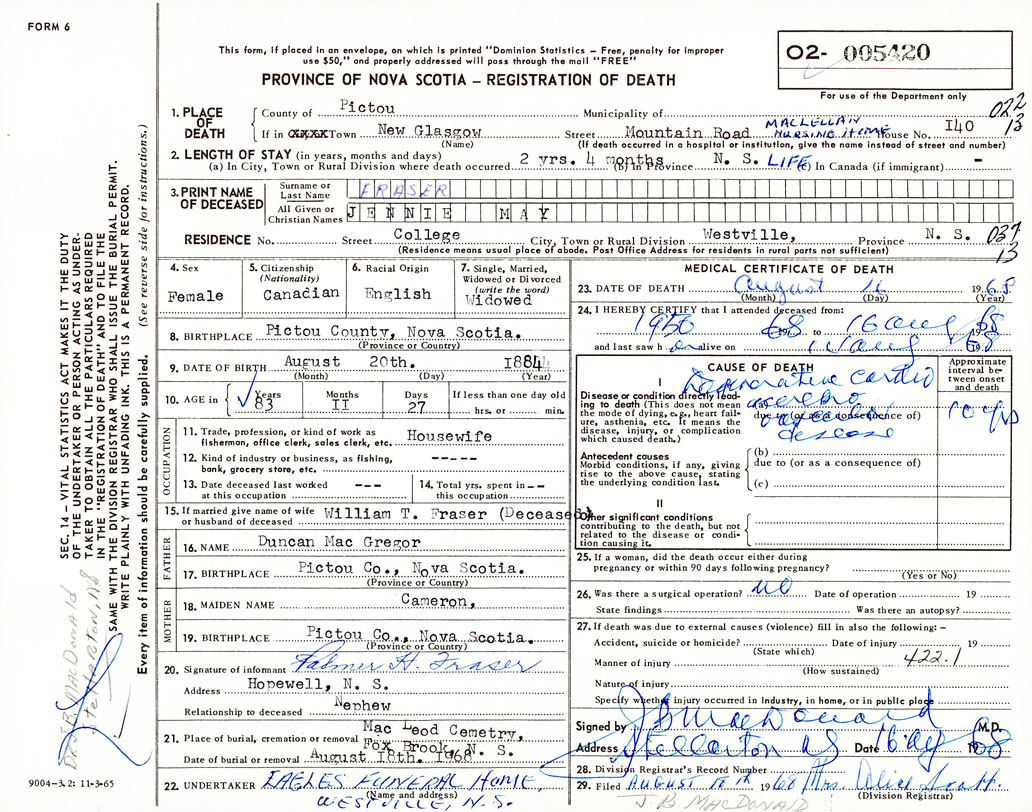 FORM 6
This form, if placed in an envelope, on which is printed "Dominion Statistics – Free, penalty for improper
use $50," and properly addressed will pass through the mail "FREE"
PROVINCE OF NOVA SCOTIA – REGISTRATION OF DEATH
O2- 005420
For use of the Department only
022
13
1. PLACE OF DEATH
County of Pictou Municipality of
If in Town New Glasgow Street Mountain Road MACLELLAN NURSING HOME House No. I40
(Name) (If death occurred in a hospital or institution, give the name instead of street and number)
2. LENGTH OF STAY (in years, months and days)
(a) In City, Town or Rural Division where death occurred 2 yrs. 4 months (b) In Province N. S. LIFE (c) In Canada (if immigrant) -
3. PRINT NAME OF DECEASED
Surname or Last Name FRASER
All Given or Christian Names JENNIE MAY
RESIDENCE No. Street College City, Town or Rural Division Westville, Province N. S. 037
13
(Residence means usual place of abode. Post Office Address for residents in rural parts not sufficient)
4. Sex
Female
5. Citizenship
(Nationality)
Canadian
6. Racial Origin
English
7. Single, Married,
Widowed or Divorced
(write the word)
Widowed
8. BIRTHPLACE Pictou County, Nova Scotia.
(Province or Country)
9. DATE OF BIRTH August 20th. I884
(Month) (Day) (Year)
10. AGE in Years 83 Months II Days 27 If less than one day old
hrs. or min.
OCCUPATION
11. Trade, profession, or kind of work as
fisherman, office clerk, sales clerk, etc. Housewife
12. Kind of industry or business, as fishing,
bank, grocery store, etc. -----
13. Date deceased last worked
at this occupation ---
14. Total yrs. spent in
this occupation --
15. If married give name of wife
or husband of deceased William T. Fraser (Deceased)
FATHER
16. NAME Duncan Mac Gregor
17. BIRTHPLACE Pictou Co., Nova Scotia.
(Province or Country)
MOTHER
18. MAIDEN NAME Cameron,
19. BIRTHPLACE Pictou Co., Nova Scotia.
(Province or Country)
20. Signature of informant Palmer H. Fraser
Address Hopewell, N. S.
Relationship to deceased Nephew
21. Place of burial, cremation or removal Mac Leod Cemetry,
Fox Brook, N. S.
Date of burial or removal August 18th. 1968
22. UNDERTAKER EAGLES FUNERAL HOME,
(Name and address)
WESTVILLE, N.S.
MEDICAL CERTIFICATE OF DEATH
23. DATE OF DEATH August 16 1968
(Month) (Day) (Year)
24. I HEREBY CERTIFY that I attended deceased from:
1950 to 16 Aug 68
and last saw h er alive on Aug 68
CAUSE OF DEATH
Approximate
interval be-
tween onset
and death
I
Disease or condition directly lead-
ing to death (This does not mean
the mode of dying, e.g., heart fail-
ure, asthenia, etc. It means the
disease, injury, or complication
which caused death.)
(a) Degenerative cardio
cerebro
due to (or as a consequence of)
vascular
disease
10 yrs
Antecedent causes
Morbid conditions, if any, giving
rise to the above cause, stating
the underlying condition last.
(b)
due to (or as a consequence of)
(c)
II
Other significant conditions
contributing to the death, but not
related to the disease or condi-
tion causing it.
25. If a woman, did the death occur either during
pregnancy or within 90 days following pregnancy?
(Yes or No)
26. Was there a surgical operation? NO Date of operation 19
State findings Was there an autopsy?
27. If death was due to external causes (violence) fill in also the following: –
Accident, suicide or homicide? Date of injury 19
(State which)
Manner of injury 422.1
(How sustained)
Nature of injury
Specify whether injury occurred in Industry, in home, or in public place
Signed by J B MacDonald M.D.
Address Stellarton NS Date 16 Aug 1968
28. Division Registrar's Record Number
29. Filed AUGUST 1968 Mrs. Alice Scott.
(Division Registrar)
J. B. MACDONALD
SEC. 14 – VITAL STATISTICS ACT MAKES IT THE DUTY
OF THE UNDERTAKER OR PERSON ACTING AS UNDER-
TAKER TO OBTAIN ALL THE PARTICULARS REQUIRED
IN THE "REGISTRATION OF DEATH" AND TO FILE THE
SAME WITH THE DIVISION REGISTRAR WHO SHALL ISSUE THE BURIAL PERMIT.
WRITE PLAINLY WITH UNFADING INK. THIS IS A PERMANENT RECORD.
Every item of information should be carefully supplied. (See reverse side for instructions.)
DR. JB MACDONALD
Stellarton, NS
9004-3.2: 11-3-65